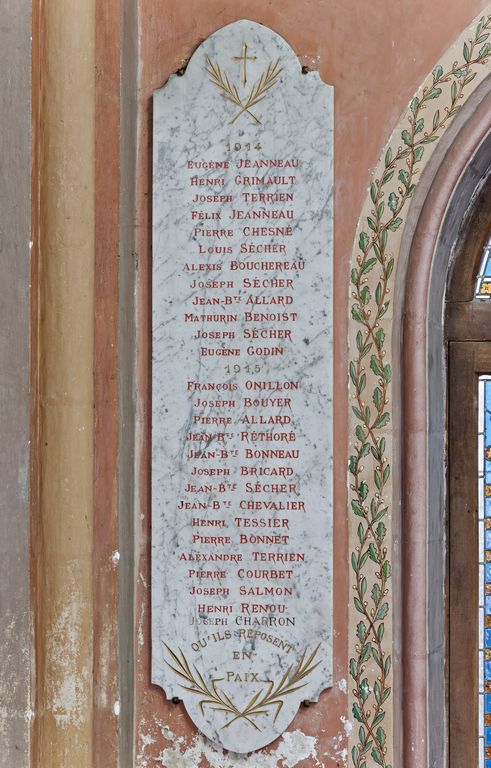 1914
Eugène Jeanneau
Henri Grimault
Joseph Terrien
Félix Jeanneau
Pierre Chesné
Louis Sécher
Alexis Bouchereau
Joseph Sécher
Jean-Bte Allard
Mathurin Benoist
Joseph Sécher
Eugène Godin
1915
François Onillon
Joseph Bouyer
Pierre Allard
Jean-Bte Réthoré
Jean-Bte Bonneau
Joseph Bricard
Jean-Bte Sécher
Jean-Bte Chevalier
Henri Tessier
Pierre Bonnet
Alexandre Terrien
Pierre Courbet
Joseph Salmon
Henri Renou
Joseph Charron
Qu'ils reposent
en
Paix